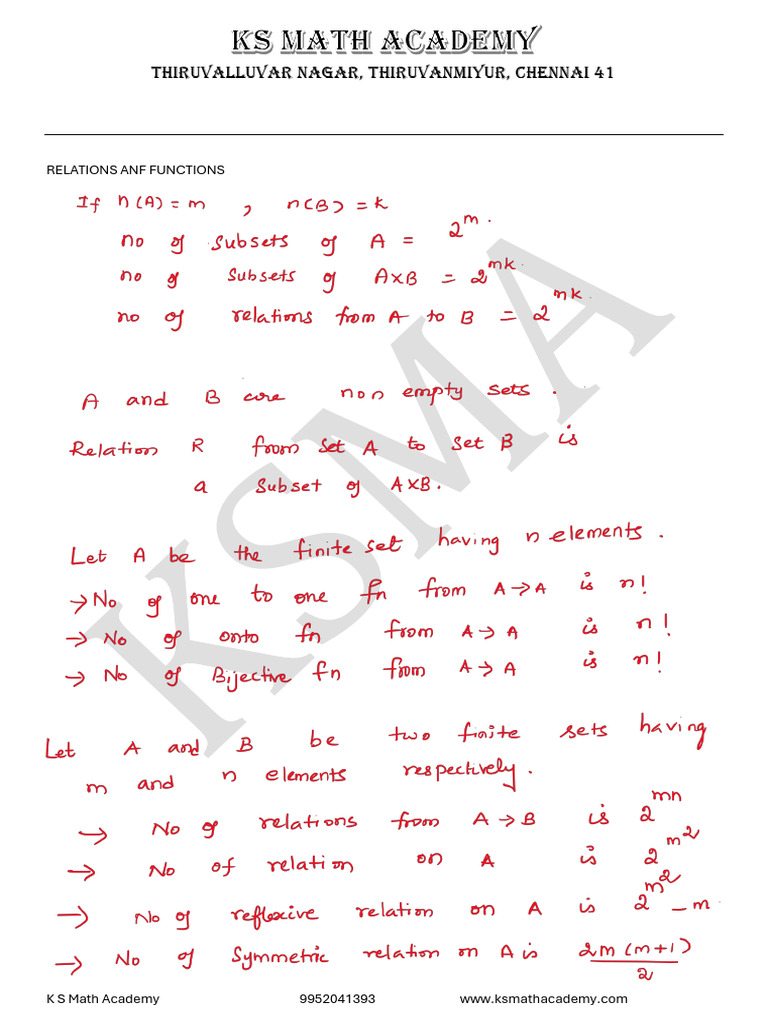 KS MATH ACADEMY
THIRUVALLUVAR NAGAR, THIRUVANMIYUR, CHENNAI 41
RELATIONS ANF FUNCTIONS
If n(A) = m , n(B) = k
no of subsets of A = 2^m.
no of subsets of A×B = 2^mk.
no of relations from A to B = 2^mk.
A and B are non empty sets .
Relation R from set A to set B is
a subset of A×B.
Let A be the finite set having n elements .
→ No of one to one fn from A→A is n!
→ No of onto fn from A→A is n!
→ No of Bijective fn from A→A is n!
Let A and B be two finite sets having
m and n elements respectively.
→ No of relations from A→B is 2^mn
→ No of relation on A is 2^m^2
→ No of reflexive relation on A is 2^m^2 - m
→ No of symmetric relation on A is 2m(m+1)/2
KSMA
K S Math Academy 9952041393 www.ksmathacademy.com